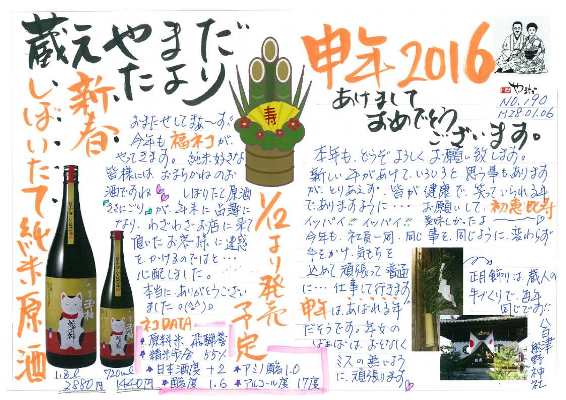 蔵元やまだ
たより
新春
しぼりたて純米原酒
おまたせしてま〜す。
今年も福招が、
やってきます。純米好きな
皆様には、おまちかねのお
酒ですね しぼりたて原酒
本当にありがとうござい
ました。(^^)
1/12より発売
予定
ネコDATA
原料米 飛騨誉
精米歩合 55%
日本酒度 +2
アミノ酸 1.0
酸度 1.6
アルコール度 17度
1.8ℓ
2880円
720ml
1440円
寿
申年2016
あけまして
おめでとう
ございます。
NO.190
H28.01.06
本年も、どうぞよろしくお願い致します。
新しい年があけて、いろいろと思う事もあります
が、とりあえず、皆が健康で、笑っていられる年
でありますように…お願いして、初恵比寿
イッパイ!!イッパイ!! 美味しかったよ〜
今年も、社員一同、同じ事を、同じように、変わらず
込めて頑張って普通
に…仕事して行きます。
申年は、あばれる年
だそうです。年女の
ミスの無いよう
に、頑張ります。
正月飾りは蔵人の
手づくりで、毎年
同じです!!
熊野神社